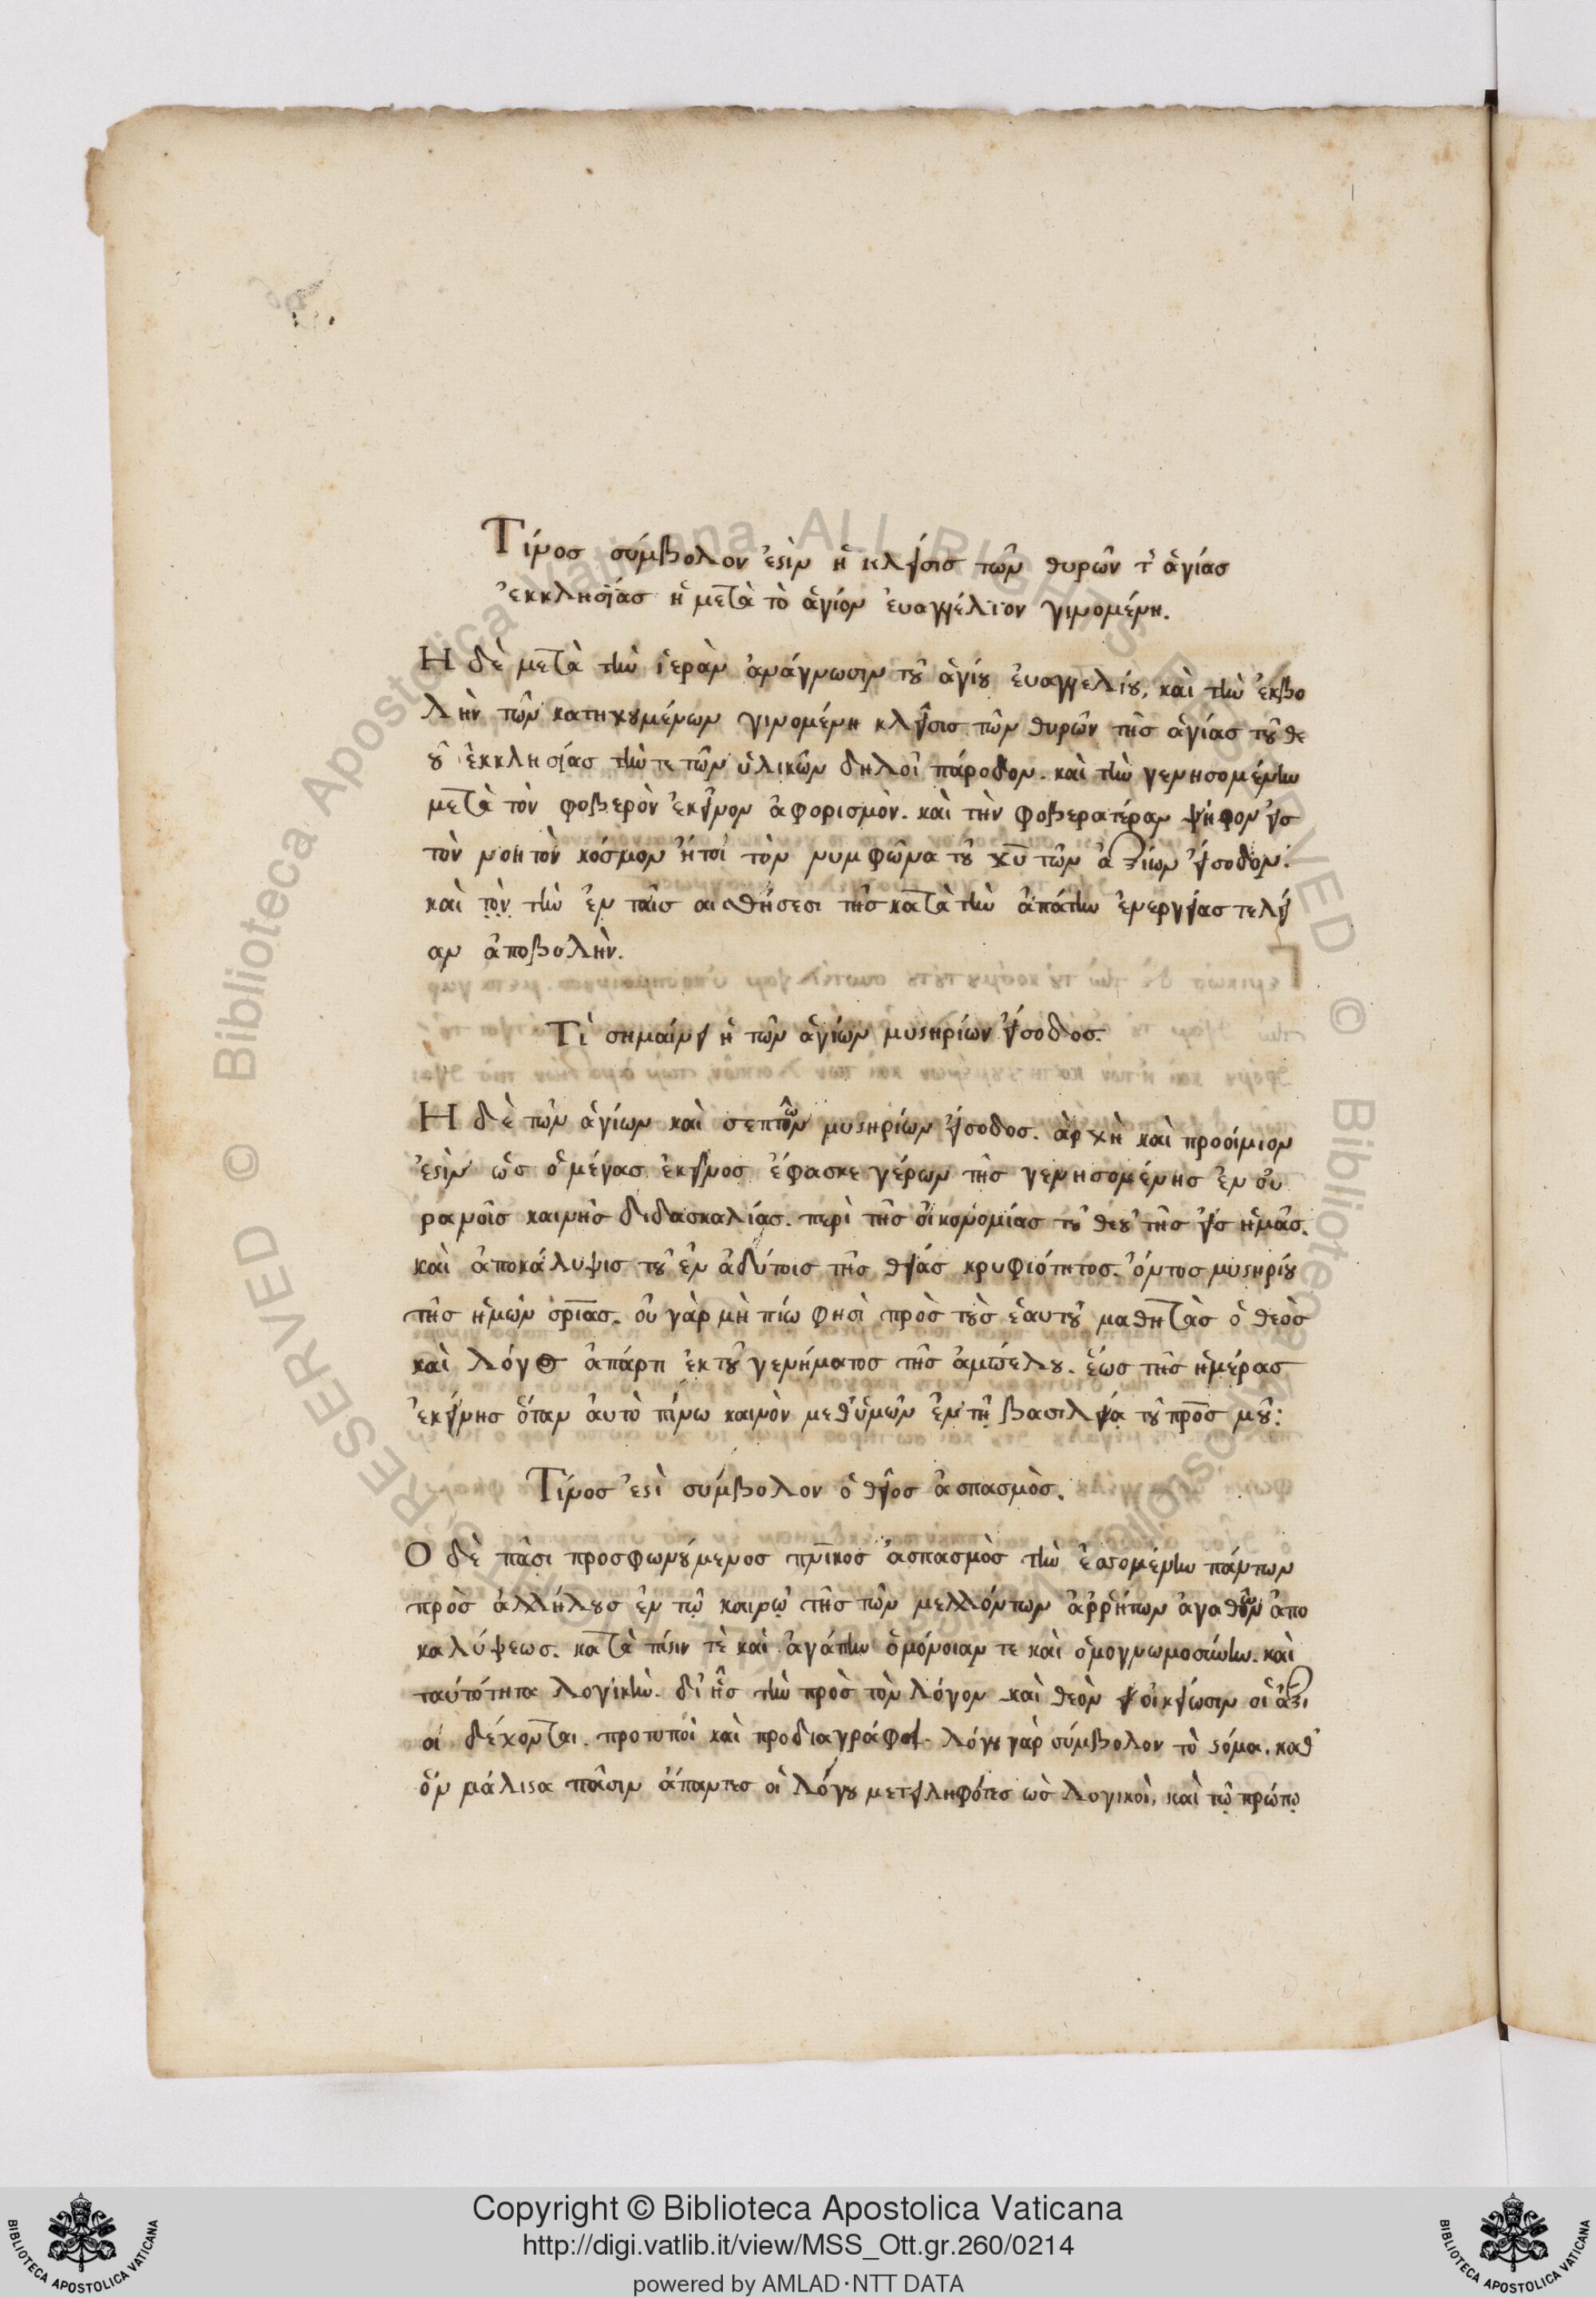 Τίνος σύμβολον ἐστὶν ἡ κλεῖσις τῶν θυρῶν τ̑ ἁγίας
ἐκκλησίας ἡ μετὰ τὸ ἁγίον ἐυαγγέλιον γινομένη.
Η δὲ μετὰ τὴν ἱερὰν ἀνάγνωσιν τοῦ ἁγίου ἐυαγγελίου, καὶ τὴν ἐκβο
λὴν τῶν κατηχουμένων γινομένη κλεῖσις τῶν θυρῶν τῆς ἁγίας τοῦ θε
οῦ ἐκκλησίας τὴν τε τῶν ὑλικῶν δηλοῖ πάροδον. καὶ τὴν γενησομένην
μετὰ τὸν φοβερὸν ἐκεῖνον ἀφορισμὸν. καὶ τὴν φοβερατέραν ψήφον εἰς
τὸν νοητὸν κόσμον ἤτοι τὸν νυμφῶνα τοῦ χυ τῶν ἀξίων εἴσοδον.
καὶ τὸν τὴν ἐν ταῖς αισθήσεσι τῆς κατὰ τὴν ἀπάτην ἐνεργείας τελεί
αν ἀποβολὴν.
Τὶ σημαίνει ἡ τῶν ἁγίων μυστηρίων εἴσοδος.
Η δὲ τῶν ἁγίων καὶ σεπτῶν μυστηρίων εἴσοδος. ἀρχὴ καὶ προοίμιον
ἐστὶν ὡς ὁ μέγας ἐκεῖνος ἔφασκε γέρων τῆς γενησομένης ἐν οὐ
ρανοῖς καινῆς διδασκαλίας. περὶ τῆς οἰκονομίας τοῦ θεοῦ τῆς εἰς ἡμᾶς.
καὶ ἀποκάλυψις τοῦ ἐν ἀδύτοις τῆς θείας κρυφιότητος. ὄντος μυστηρίου
τῆς ἡμῶν σριας. οὐ γὰρ μὴ πίω φησὶ πρὸς τοὺς ἑαυτοῦ μαθητὰς ὁ θεὸς
καὶ λόγος ἀπάρτι ἐκ τοῦ γενήματος τῆς ἀμπέλου. ἕως τῆς ἡμέρας
ἐκείνης ὅταν ἀυτὸ πίνω καινὸν μεθ' ὑμῶν ἐν τῇ βασιλείᾳ τοῦ προς μου:
Τίνος ἐστὶ σύμβολον ὁ θεῖος ἀσπασμὸς.
Ο δὲ πᾶσι προσφωνούμενος πνικος ἀσπασμὸς τὴν ἐσομένην πάντων
πρὸς ἀλλήλους ἐν τῷ καιρῷ τῆς τῶν μελλόντων ἀῤῥήτων ἀγαθῶν ἀπο
καλύψεως. κατὰ πίστιν τὲ καὶ ἀγάπην ὁμόνοιαν τε καὶ ὁμογνωμοσύνην. καὶ
ταὐτότητα λογικὴν. δι' ἧς τὴν πρὸς τὸν λόγον καὶ θεὸν εἰοικείωσιν οἱ ἄξι
οι δέχονται. προτυποῖ καὶ προδιαγράφει. λόγου γὰρ σύμβολον τὸ στόμα. καθ'
ὃν μάλιστα πᾶσιν ἅπαντες οἱ λόγου μετειληφότες ὡς λογικοὶ, καὶ τῷ πρώτῳ
Copyright © Biblioteca Apostolica Vaticana
http://digi.vatlib.it/view/MSS_Ott.gr.260/0214
powered by AMLAD·NTT DATA